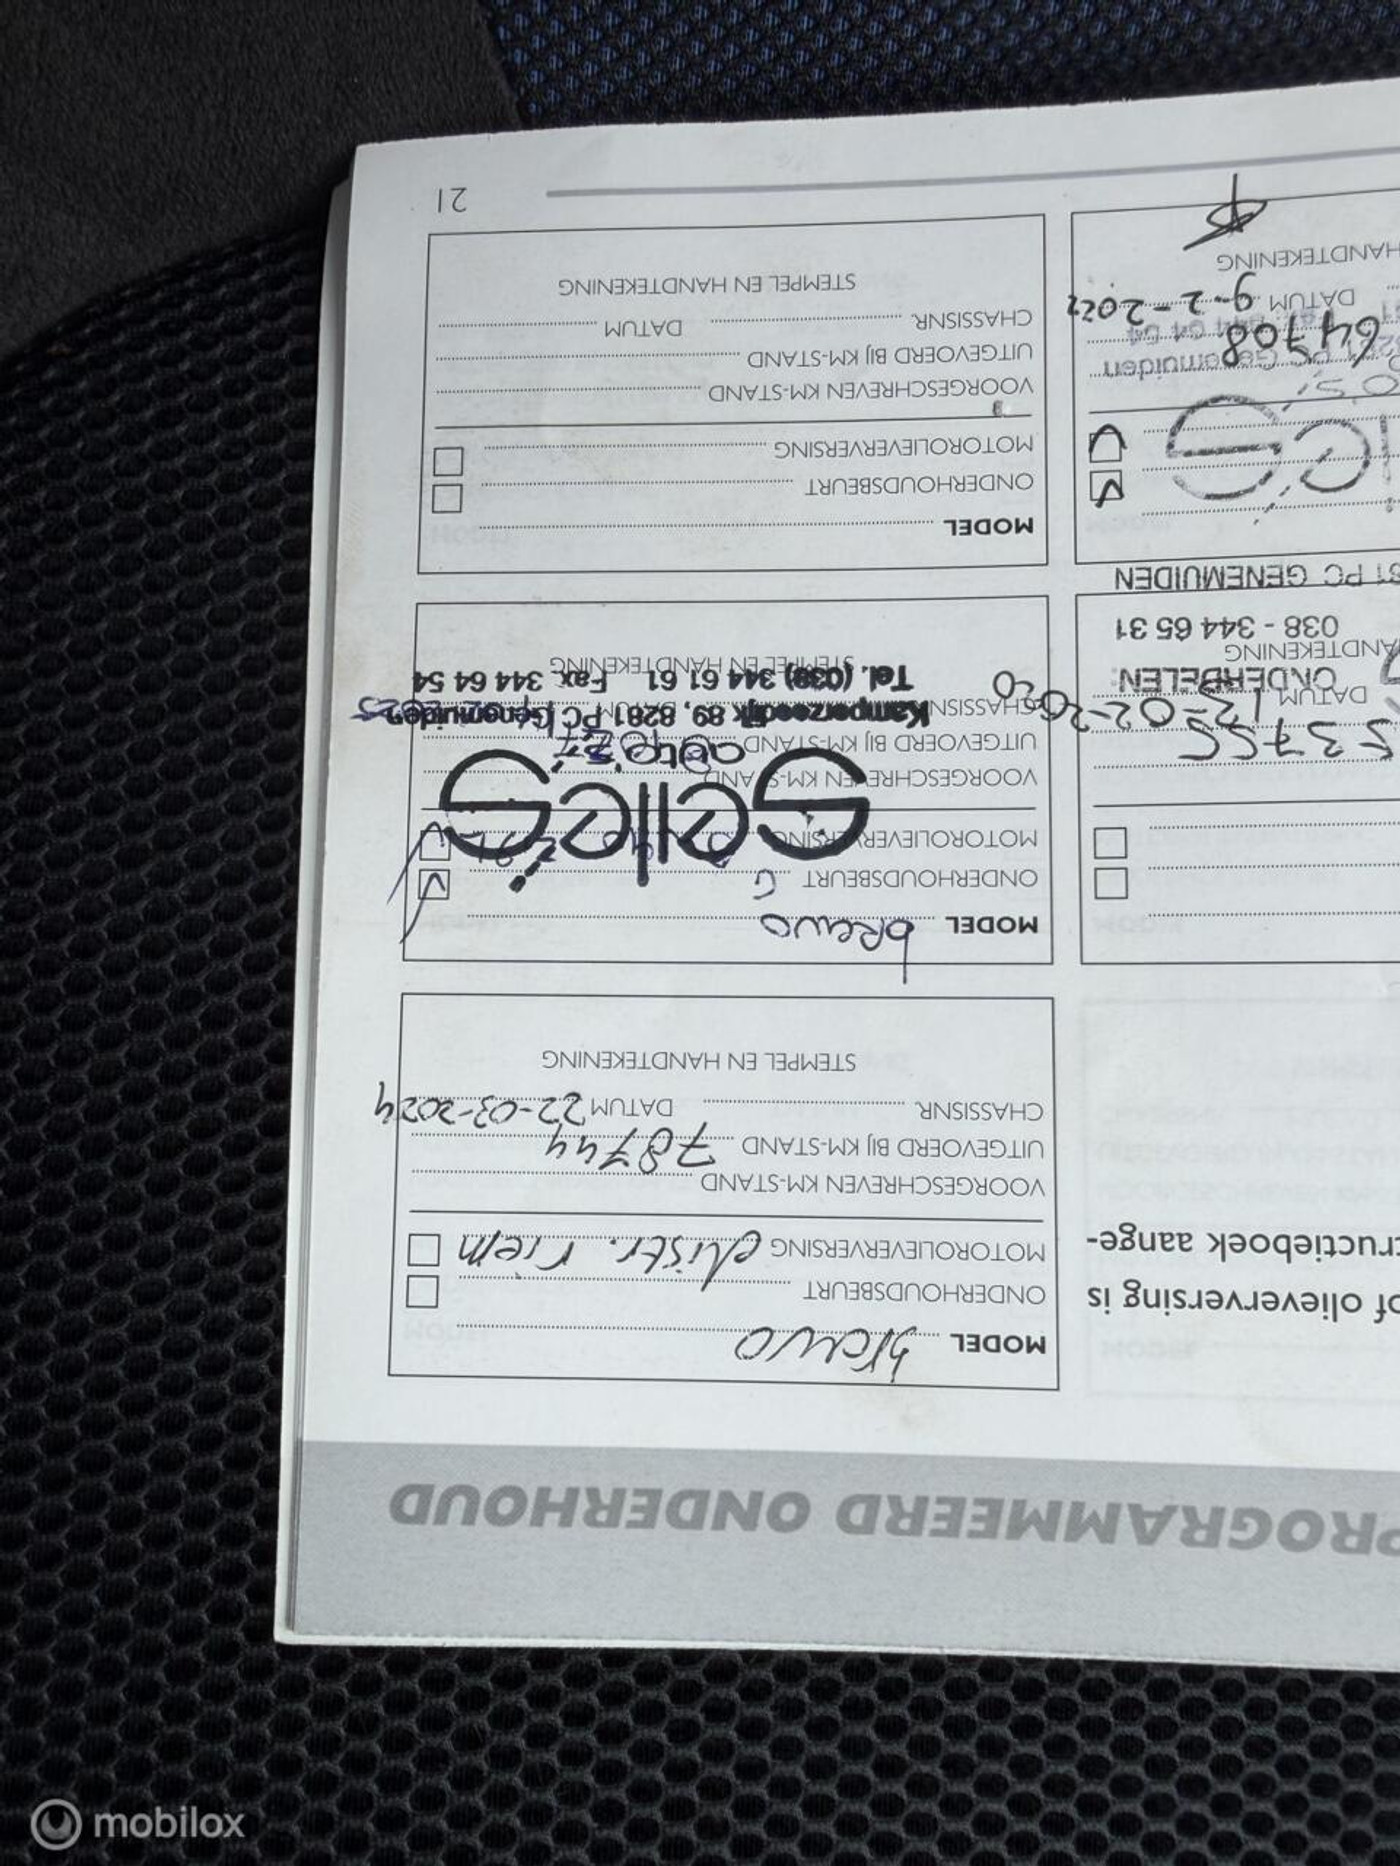 PROGRAMMEERD ONDERHOUD
of olieversing is
ructieboek aange-
MODEL bravo
ONDERHOUDSBEURT
MOTOROLIEVERVERSING distr. riem
VOORGESCHREVEN KM-STAND
UITGEVOERD BIJ KM-STAND 78744
CHASSISNR. DATUM 22-03-2024
STEMPEL EN HANDTEKENING
DATUM 12-02-2020
ONDERDELEN:
ANDTEKENING
038 - 344 65 31
81 PC GENEMUIDEN
MODEL bravo
ONDERHOUDSBEURT
MOTOROLIEVERVERSING
Selles
VOORGESCHREVEN KM-STAND
UITGEVOERD BIJ KM-STAND
auto's
CHASSISNR.
Kamperzeedijk 89, 8281 PC Genemuiden
Tel. (038) 344 61 61 Fax. 344 64 54
STEMPEL EN HANDTEKENING
PC Genemuiden
64708
DATUM 9-2-2022
HANDTEKENING
MODEL
ONDERHOUDSBEURT
MOTOROLIEVERVERSING
VOORGESCHREVEN KM-STAND
UITGEVOERD BIJ KM-STAND
CHASSISNR. DATUM
STEMPEL EN HANDTEKENING
21
mobilox